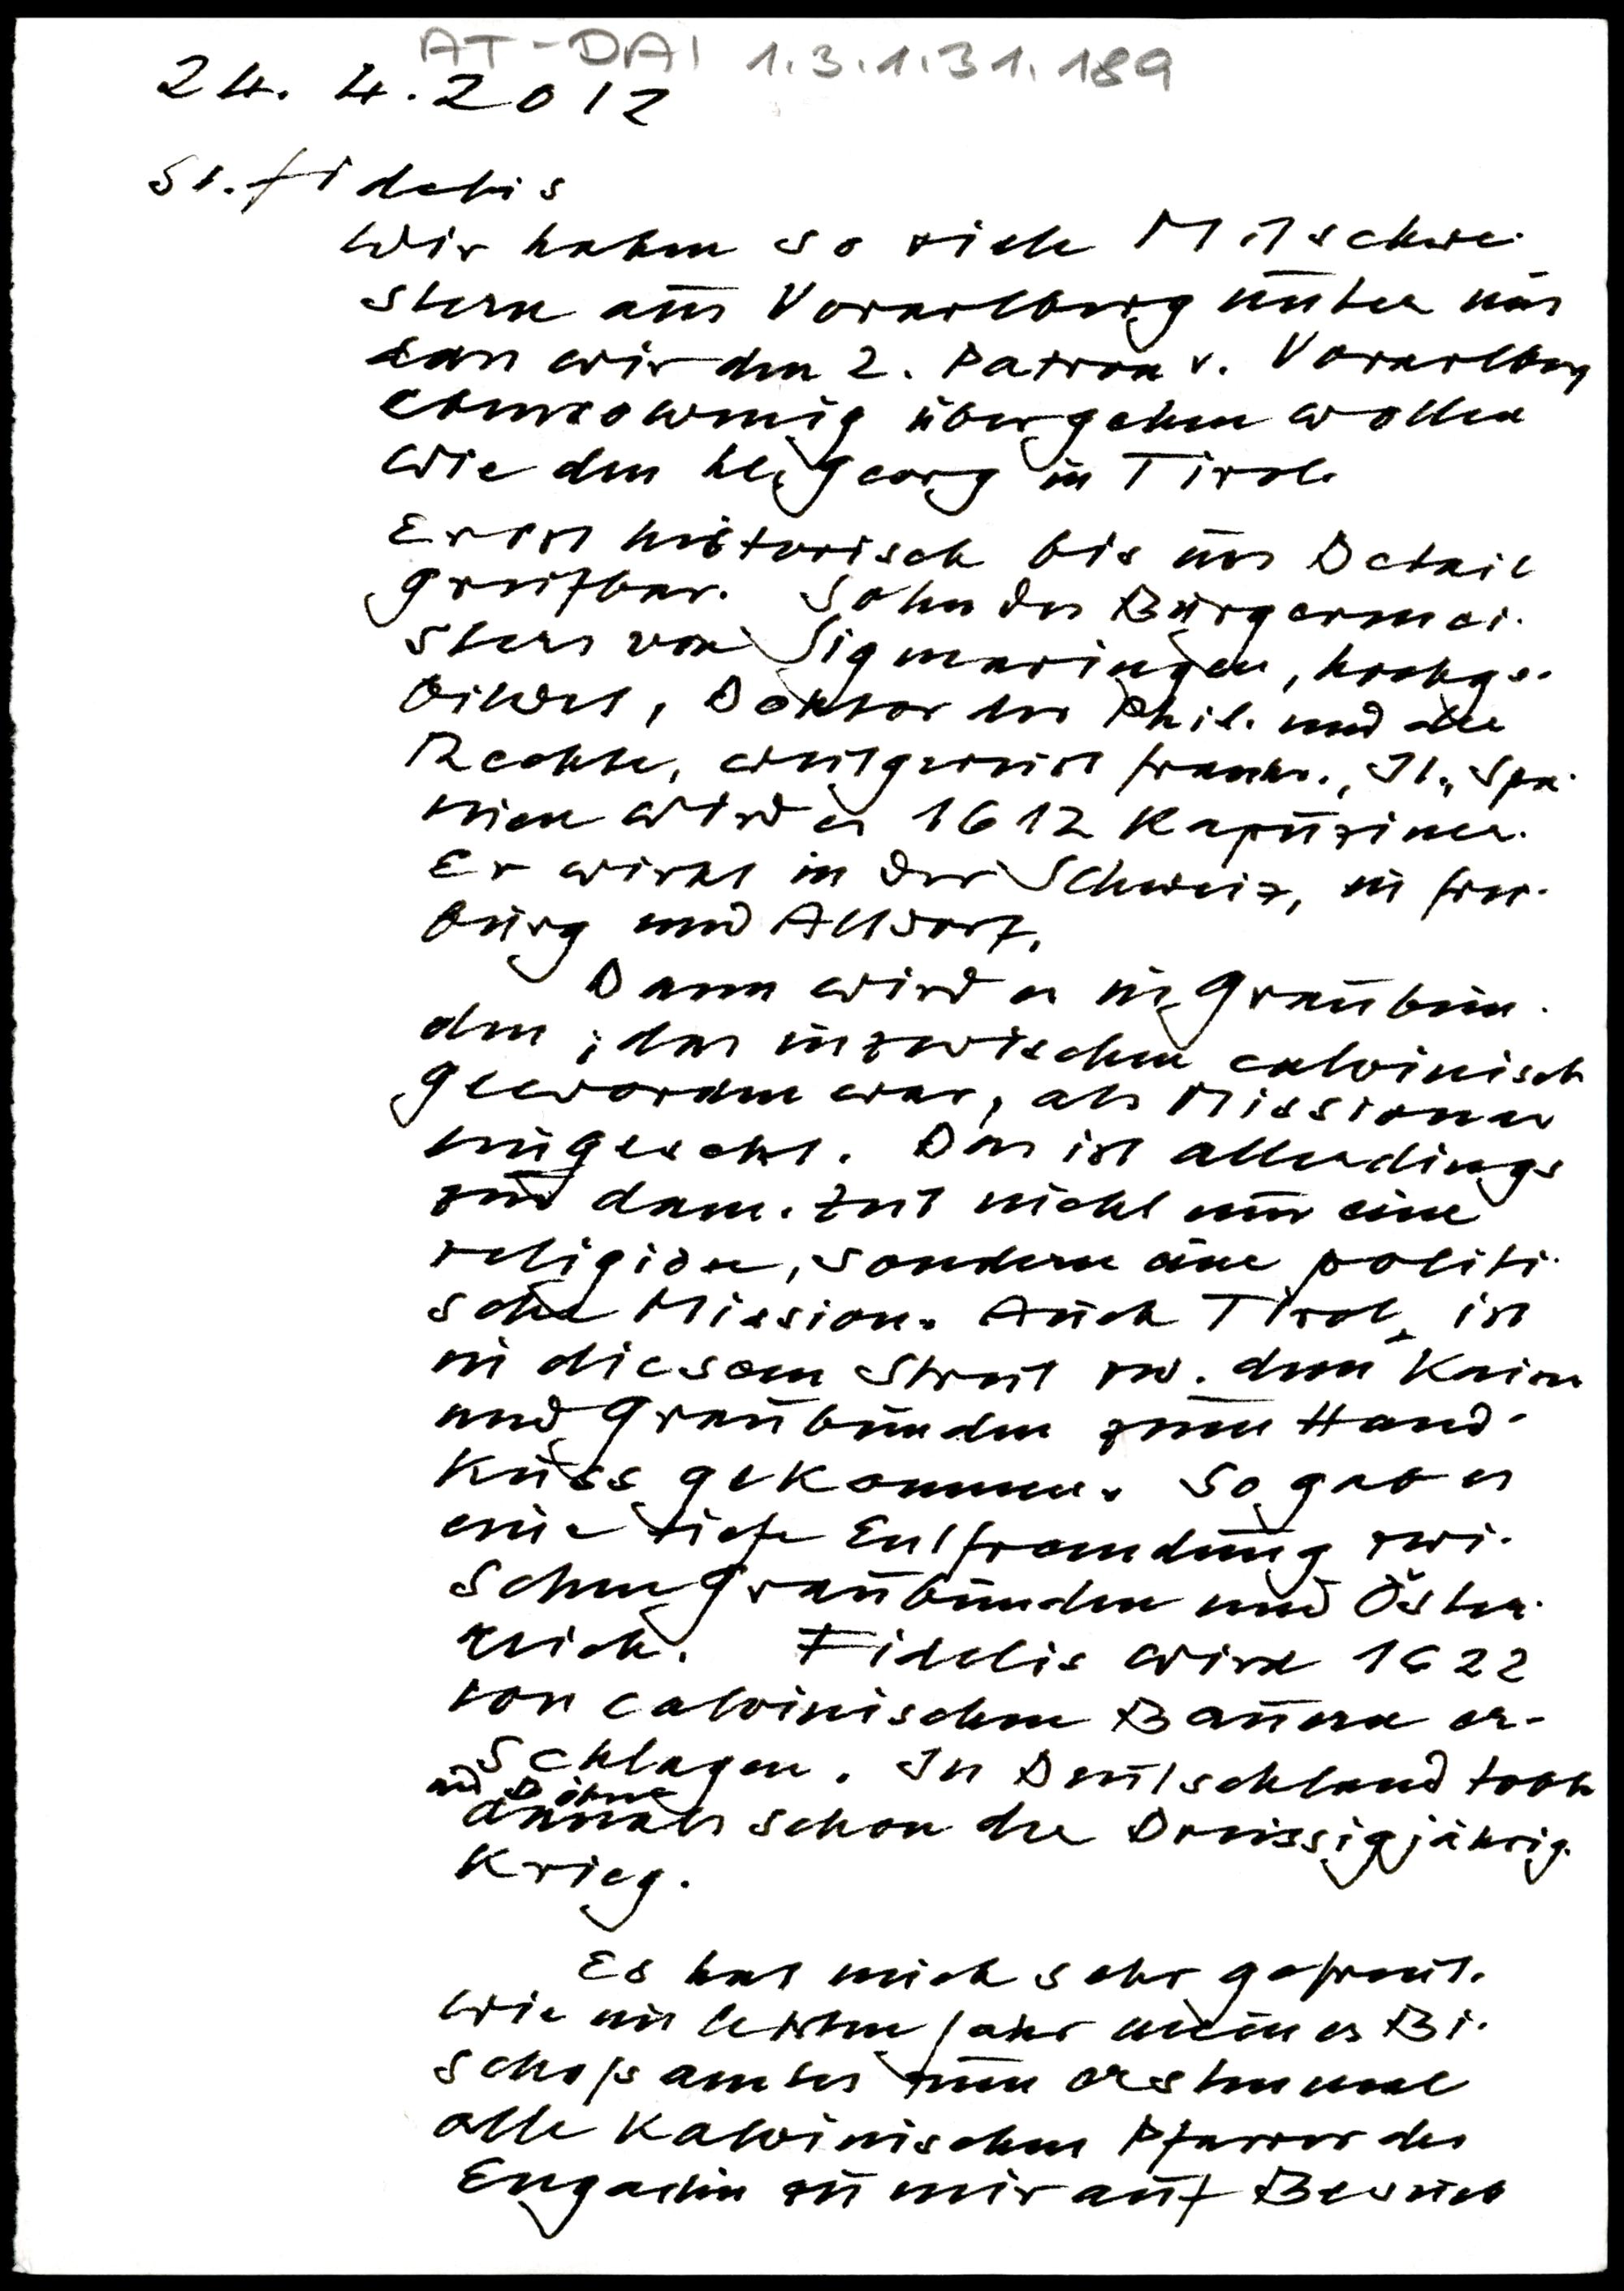 AT-DAI 1.3.1.31.189
24. 4. 2012
St. Fidelis
Wir haben so viele Mitschwe-
stern aus Vorarlberg unter uns
dass wir den 2. Patron v. Vorarlberg
ebensowenig übergehen wollen
wie den hl. Georg in Tirol.
Er ist historisch bis ins Detail
greifbar. Sohn des Bürgermei-
sters von Sigmaringen, hochge-
bildet, Doktor der Phil. und der
Rechte, weitgereist Frankr., It., Spa-
nien wird er 1612 Kapuziner.
Er wirkt in der Schweiz, in Frei-
burg und Altdorf.
Dann wird er in Graubün-
den, das inzwischen calvinisch
geworden war, als Missionar
eingesetzt. Das ist allerdings
zur dam. Zeit nicht nur eine
religiöse, sondern eine politi-
sche Mission. Auch Tirol ist
in diesem Streit zw. dem Kaiser
und Graubünden zum Hand-
kuss gekommen. So gab es
eine tiefe Entfremdung zwi-
schen Graubünden und Öster-
reich. Fidelis wird 1622
von calvinischen Bauern er-
schlagen. In Deutschland tobte
und Böhmen
damals schon der Dreissigjährig.
Krieg.
Es hat mich sehr gefreut.
wie im letzten Jahr meines Bi-
schofsamtes zum erstenmal
alle kalvinischen Pfarrer des
Engadin zu mir auf Besuch